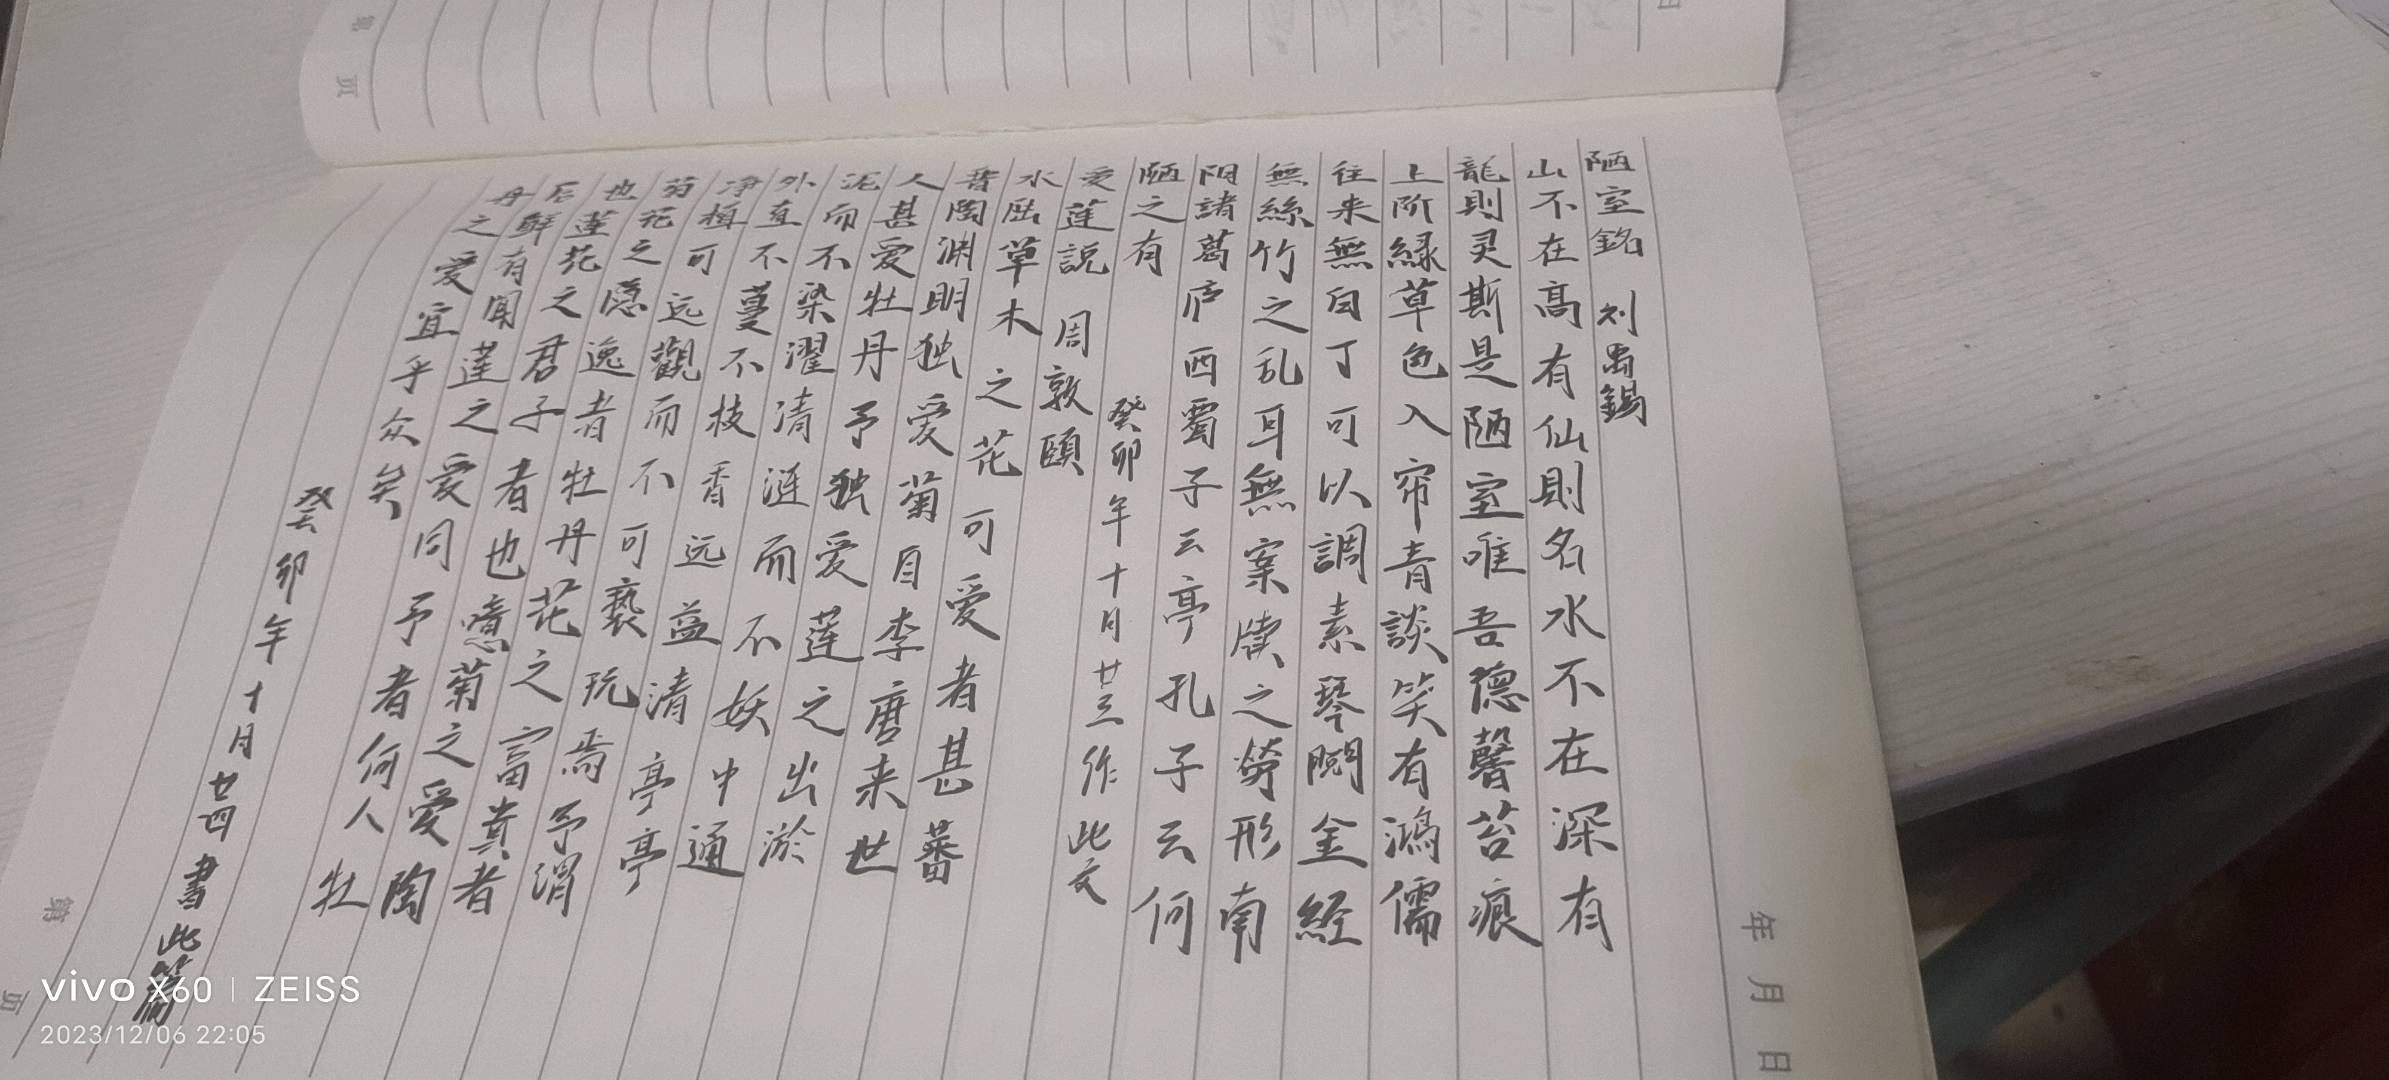 陋室銘 刘禹錫
山不在高有仙則名水不在深有
龍則灵斯是陋室唯吾德馨苔痕
上阶緑草色入帘青談笑有鴻儒
往来無白丁可以調素琴閱金経
無絲竹之乱耳無案牍之勞形南
阳諸葛庐西蜀子云亭孔子云何
陋之有
癸卯年十月廿三作此文
爱莲説 周敦頤
水陆草木之花可爱者甚蕃
晋陶渊明独爱菊自李唐来世
人甚爱牡丹予独爱莲之出淤
泥而不染濯清涟而不妖中通
外直不蔓不枝香远益清亭亭
净植可远觀而不可褻玩焉予谓
菊花之隱逸者牡丹花之富貴者
也莲花之君子者也噫菊之爱陶
后鮮有闻莲之爱同予者何人牡
丹之爱宜乎众矣
癸卯年十月廿四書此篇
年 月 日
第 页
第 页
日
vivo X60 | ZEISS
2023/12/06 22:05